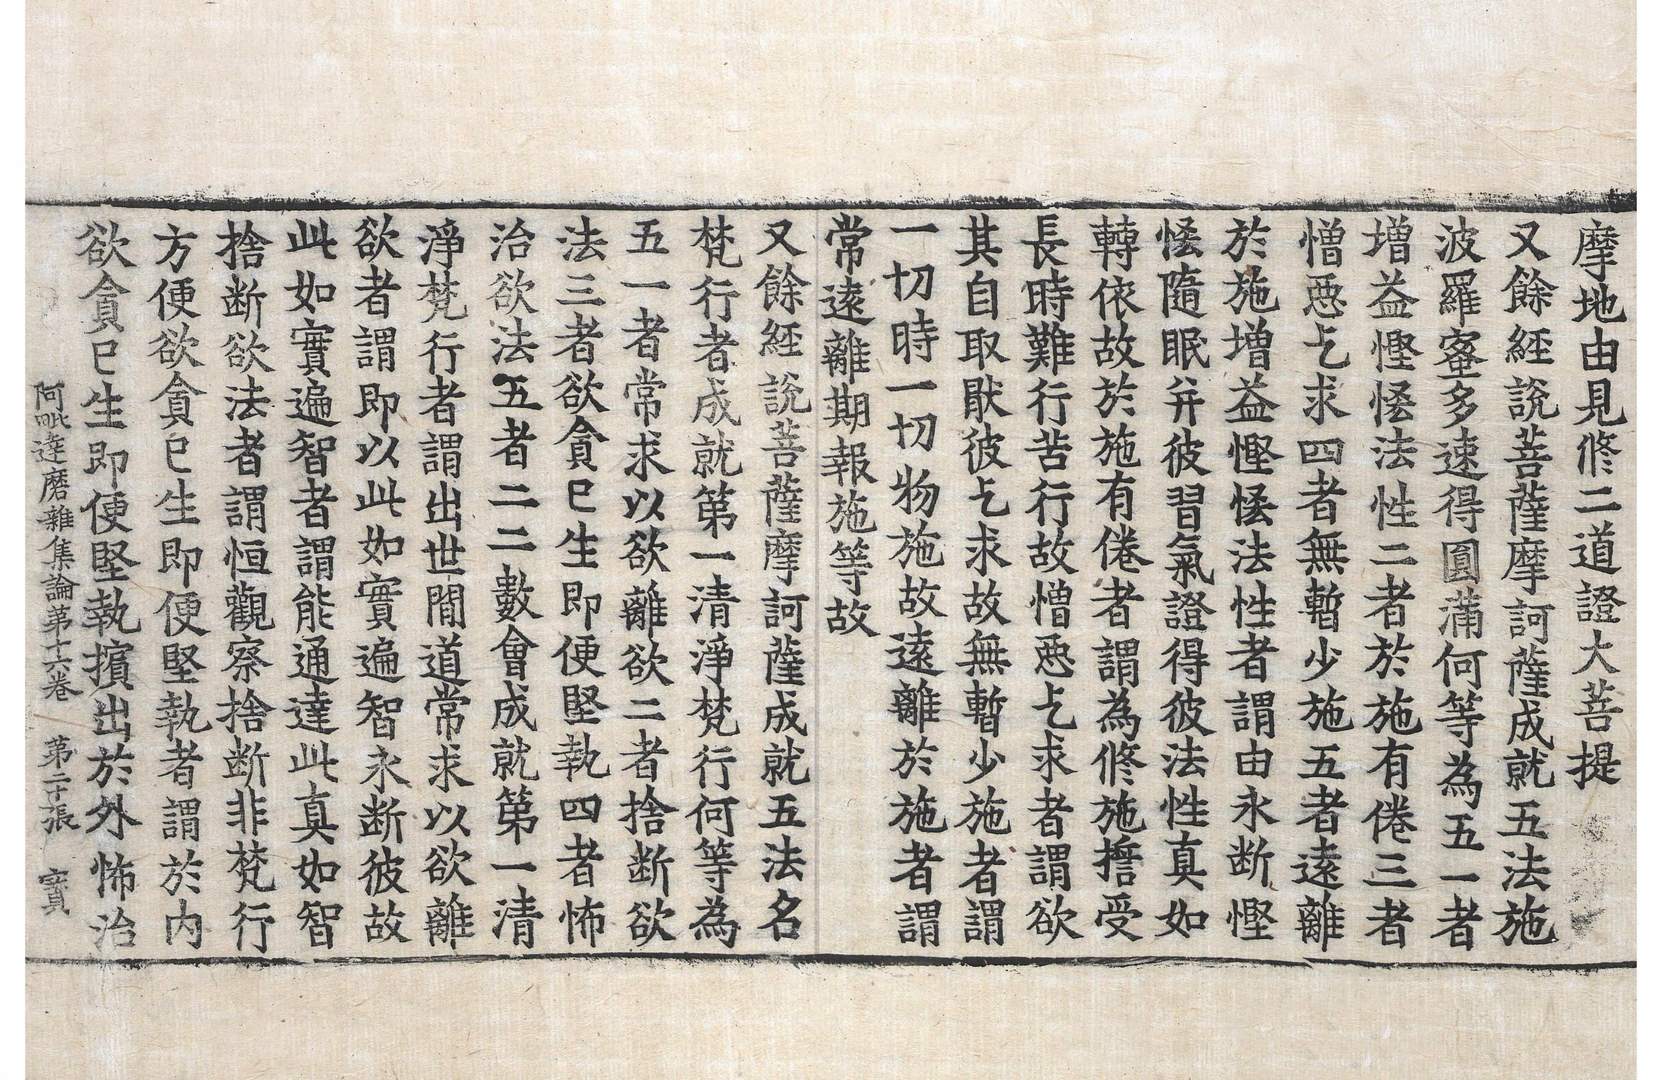 摩地由見修二道證大菩提
又餘經說菩薩摩訶薩成就五法施
波羅蜜多速得圓滿何等為五一者
增益慳悋法性二者於施有倦三者
憎惡乞求四者無暫少施五者遠離
於施增益慳悋法性者謂由永斷慳
悋隨眠并彼習氣證得彼法性真如
轉依故於施有倦者謂為修施擔受
長時難行苦行故憎惡乞求者謂欲
其自取猒彼乞求故無暫少施者謂
一切時一切物施故遠離於施者謂
常遠離期報施等故
又餘經說菩薩摩訶薩成就五法名
梵行者成就第一清淨梵行何等為
五一者常求以欲離欲二者捨断欲
法三者欲貪已生即便堅執四者怖
治欲法五者二二數會成就第一清
淨梵行者謂出世間道常求以欲離
欲者謂即以此如實遍智永断彼故
此如實遍智者謂能通達此真如智
捨断欲法者謂恒觀察捨断非梵行
方便欲貪已生即便堅執者謂於内
欲貪已生即便堅執擯出於外怖治
阿毗達磨雜集論第十六卷 第二十張 寳